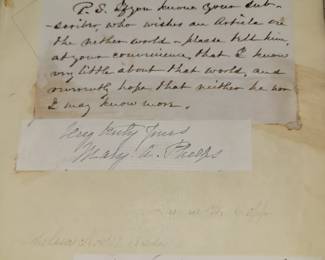 P.S. If you know your sub-
scriber, who wishes an Article on
the nether world - please tell him,
at your convenience, that I know
very little about that world, and
earnestly hope that neither he nor
I may know more.
Very truly yours
Mary A. Phelps